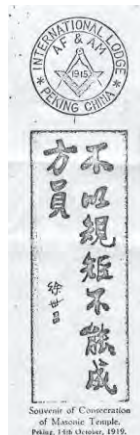 INTERNATIONAL LODGE
AF & AM
1915
* PEKING CHINA *
不以規矩不能成
方員
徐世昌
Souvenir of Consecration
of Masonic Temple.
Peking, 14th October, 1919.